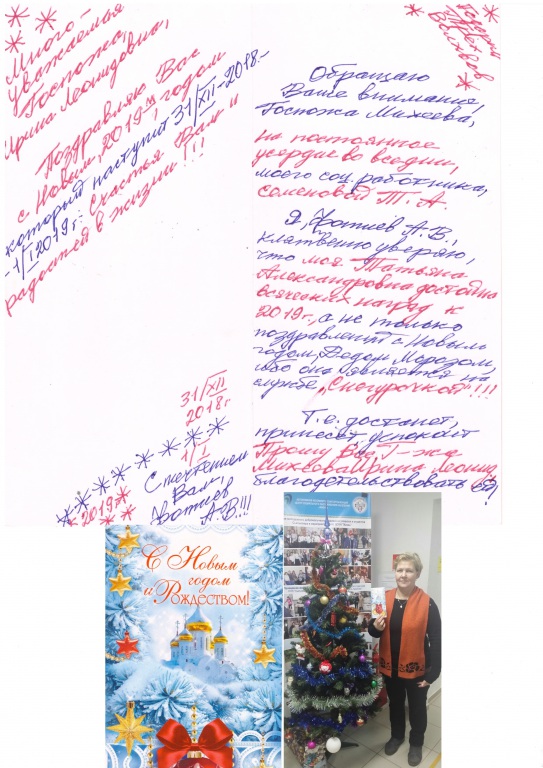 Много-
уважаемая
Госпожа,
Ирина Леонидовна,
Поздравляю Вас
с Новым, 2019-м, годом
который наступит 31/XII-2018.-
-1/I 2019г. Счастья Вам и
радостей в жизни!!!
31/XII
2018г
1/I
2019
С почтением
Вам,
Фотиев
А.В.!!!
Обращаю
Ваше внимание,
Госпожа Михеева,
на постоянное
усердие во всёдни,
моего соц. работника,
Семеновой Т. А.
Я, Фотиев А.В.,
клятвенно уверяю,
что моя Татьяна
Александровна достойна
всяческих наград к
2019г., а не только
поздравлений с Новым
годом, Дедом Морозом,
ибо она является на
службе „Снегурочкой"!!!
Т.е. достанет,
принесёт, успокоит
Прошу Вас, Г-жа
Михеева Ирина Леонид
благодетельствовать ей!
С Новым
годом
и Рождеством!